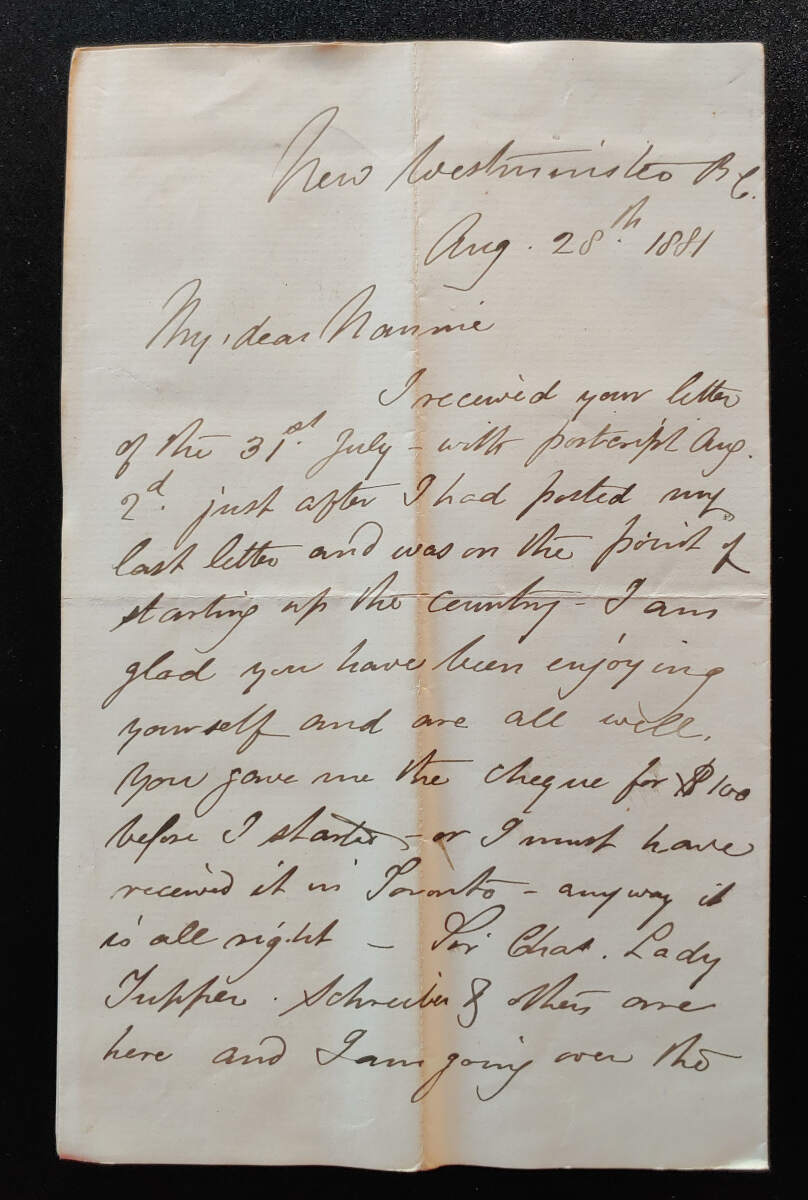 New Westminster B.C.
Aug. 28th. 1881
My dear Nannie
I received your letter
of the 31st. July - with postscript Aug.
2d. just after I had posted my
last letter and was on the point of
starting up the country - I am
glad you have been enjoying
yourself and are all well.
You gave me the cheque for $100
before I started - or I must have
received it in Toronto - anyway it
is all right - Sir Chas. Lady
Tupper. Schreiber & others are
here and I am going over the